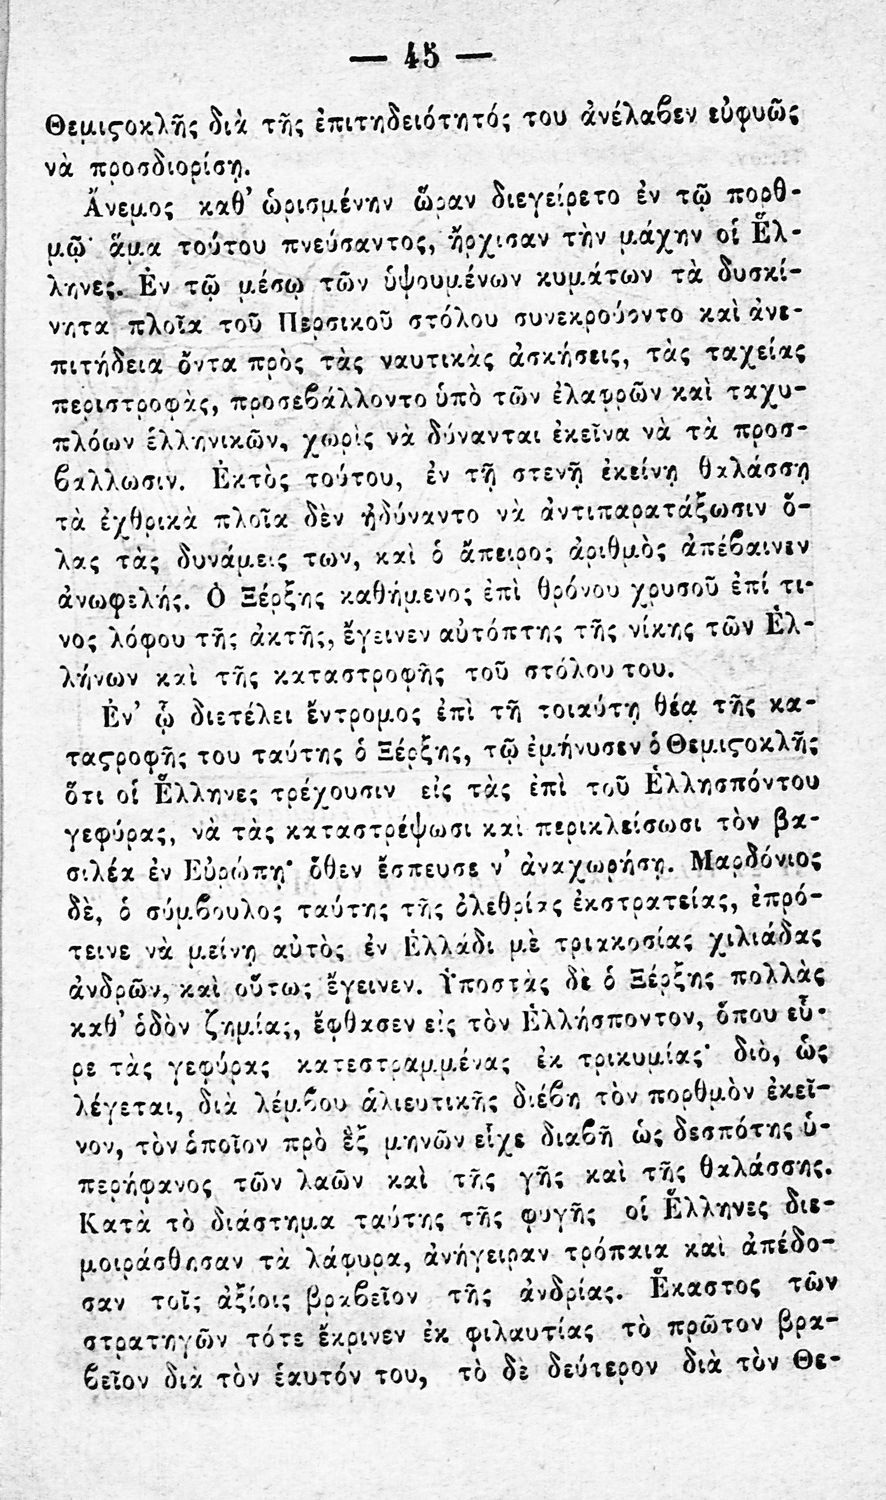 — 45 —
Θεμιςοκλῆς διὰ τῆς ἐπιτηδειότητός του ἀνέλαβεν εὐφυῶς
νὰ προσδιορίσῃ.
Ἄνεμος καθ’ ὡρισμένην ὥραν διεγείρετο ἐν τῷ πορθ-
μῷ· ἅμα τούτου πνεύσαντος, ἤρχισαν τὴν μάχην οἱ Ἕλ-
ληνες. Ἐν τῷ μέσῳ τῶν ὑψουμένων κυμάτων τὰ δυσκί-
νητα πλοῖα τοῦ Περσικοῦ στόλου συνεκρούοντο καὶ ἀνε-
πιτήδεια ὄντα πρὸς τὰς ναυτικὰς ἀσκήσεις, τὰς ταχείας
περιστροφὰς, προσεβάλλοντο ὑπὸ τῶν ἐλαφρῶν καὶ ταχυ-
πλόων ἑλληνικῶν, χωρὶς νὰ δύνανται ἐκεῖνα νὰ τὰ προσ-
βαλλωσιν. Ἐκτὸς τούτου, ἐν τῇ στενῇ ἐκείνῃ θαλάσσῃ
τὰ ἐχθρικὰ πλοῖα δὲν ἠδύναντο νὰ ἀντιπαρατάξωσιν ὅ-
λας τὰς δυνάμεις των, καὶ ὁ ἄπειρος ἀριθμὸς ἀπέβαινεν
ἀνωφελής. Ὁ Ξέρξης καθήμενος ἐπὶ θρόνου χρυσοῦ ἐπί τι-
νος λόφου τῆς ἀκτῆς, ἔγεινεν αὐτόπτης τῆς νίκης τῶν Ἑλ-
λήνων καὶ τῆς καταστροφῆς τοῦ στόλου του.
Ἐν’ ᾧ διετέλει ἔντρομος ἐπὶ τῇ τοιαύτῃ θέᾳ τῆς κα-
ταςροφῆς του ταύτης ὁ Ξέρξης, τῷ ἐμήνυσεν ὁ Θεμιςοκλῆς
ὅτι οἱ Ἕλληνες τρέχουσιν εἰς τὰς ἐπὶ τοῦ Ἑλλησπόντου
γεφύρας, νὰ τὰς καταστρέψωσι καὶ περικλείσωσι τὸν βα-
σιλέα ἐν Εὐρώπῃ· ὅθεν ἔσπευσε ν’ ἀναχωρήσῃ. Μαρδόνιος
δὲ, ὁ σύμβουλος ταύτης τῆς ὀλεθρίας ἐκστρατείας, ἐπρό-
τεινε νὰ μείνῃ αὐτὸς ἐν Ἑλλάδι μὲ τριακοσίας χιλιάδας
ἀνδρῶν, καὶ οὕτως ἔγεινεν. Ὑποστὰς δὲ ὁ Ξέρξης πολλὰς
καθ’ ὁδὸν ζημίας, ἔφθασεν εἰς τὸν Ἑλλήσποντον, ὅπου εὗ-
ρε τὰς γεφύρας κατεστραμμένας ἐκ τρικυμίας· διὸ, ὡς
λέγεται, διὰ λέμβου ἁλιευτικῆς διέβη τὸν πορθμὸν ἐκεῖ-
νον, τὸν ὁποῖον πρὸ ἓξ μηνῶν εἶχε διαβῆ ὡς δεσπότης ὑ-
περήφανος τῶν λαῶν καὶ τῆς γῆς καὶ τῆς θαλάσσης.
Κατὰ τὸ διάστημα ταύτης τῆς φυγῆς οἱ Ἕλληνες διε-
μοιράσθησαν τὰ λάφυρα, ἀνήγειραν τρόπαια καὶ ἀπέδο-
σαν τοῖς ἀξίοις βραβεῖον τῆς ἀνδρίας. Ἕκαστος τῶν
στρατηγῶν τότε ἔκρινεν ἐκ φιλαυτίας τὸ πρῶτον βρα-
βεῖον διὰ τὸν ἑαυτόν του, τὸ δὲ δεύτερον διὰ τὸν Θε-